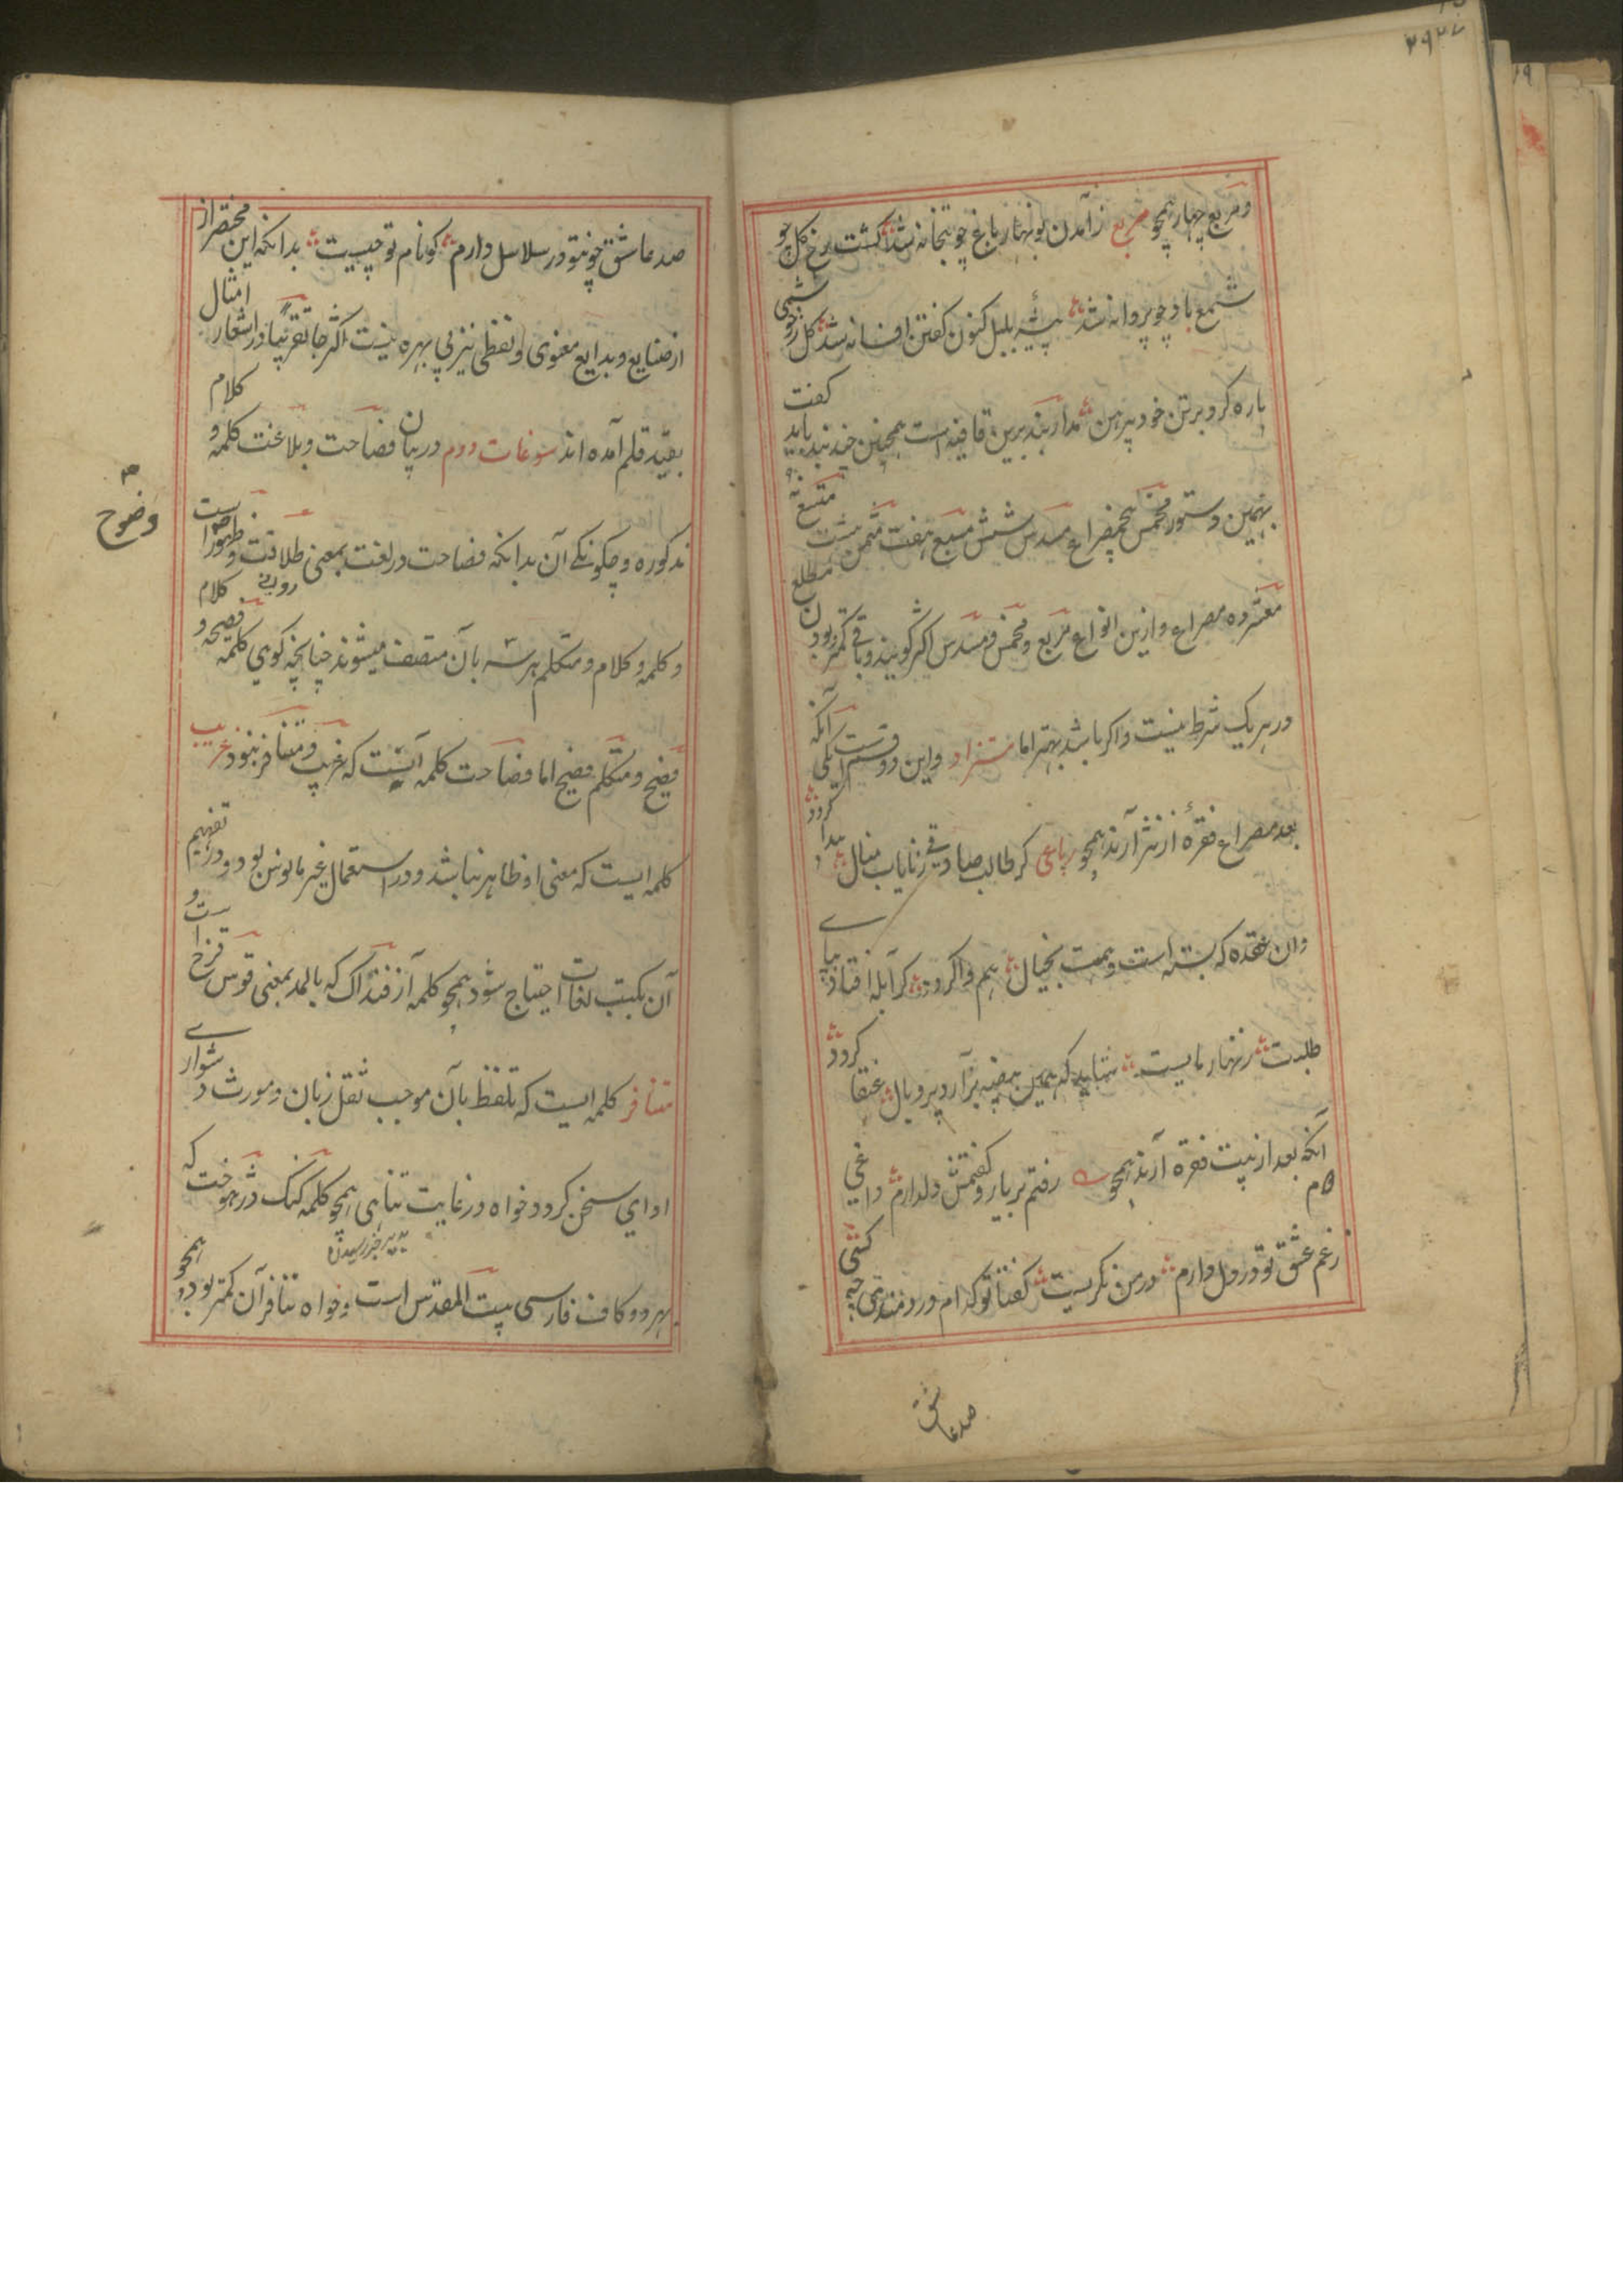 ۲۹۲
ومربع چهار همچو مربع ز آمدن نوبهار باغ چو بتخانه شد گشت رخ گل چو
شمع باد چو پروانه شد پیشهٔ بلبل کنون گفتن افسانه شد گل ز چو
پاره کرد بر تن خود پیرهن مدار بند برین قافیه است همچنین چند بند باید گفت
بهمین دستور مخمس پنجمصراع مسدس شش مسبع هفت مثمن هشت متسع نه
معشر ده مصراع وازین انواع مربع ومخمس ومسدس اکثر گویند وباقی کمتر وبودن مطلع
در هر یک شرط نیست واگر باشد بهتر اما مستزاد واین دو قسم است یکی آنکه
بعد مصراع فقرهٔ از نثر آرند همچو رباعی گر طالب صادقی ز نایاب منال پیدا گردد
وان عقده که بسته است وهمت بخیال هم وا گردد گر آبله افتاد بپای
طلبت زنهار مایست شاید که همین بیضه برآرد پر وبال عنقا گردد
آنکه بعد از بیت فقره آرند همچو رفتم بر یار وگفتمش دلدارم داغی
ز غم عشق تو در دل دارم در من نگریست گفتا تو کدام دردمندی چه کسی
صد عاشق
صد عاشق چو تو در سلاسل دارم گو نام تو چیست بدانکه این مختصر از
از صنایع وبدایع معنوی ولفظی نیز بی بهره نیست اکثر جا تقریبا در اشعار امثال
بقید قلم آمده اند سوغات دوم در بیان فصاحت وبلاغت کلمه و کلام
مذکوره وچگونگی آن بدانکه فصاحت در لغت بمعنی طلاقت وظهور است
وضوح
وکلمه وکلام ومتکلم هر سه بآن متصف میشوند چنانچه گوی کلمه فصیحه و کلام
فصیح ومتکلم فصیح اما فصاحت کلمه آنست که غریب ومتنافر نبود غریب
کلمه ایست که معنی او ظاهر نباشد ودر استعمال غیر مانوس بود ودر تفهیم
آن بکتب لغات احتیاج شود همچو کلمه آزفنداک که بالمد بمعنی قوس قزح است و
متنافر کلمه ایست که تلفظ بآن موجب ثقل زبان ومورث دشواری
ادای سخن گردد خواه در غایت تناهی همچو کلمه گنگ دژهوخت که
بهر دو کاف فارسی بیت المقدس است وخواه تنافر آن کمتر بود همچو